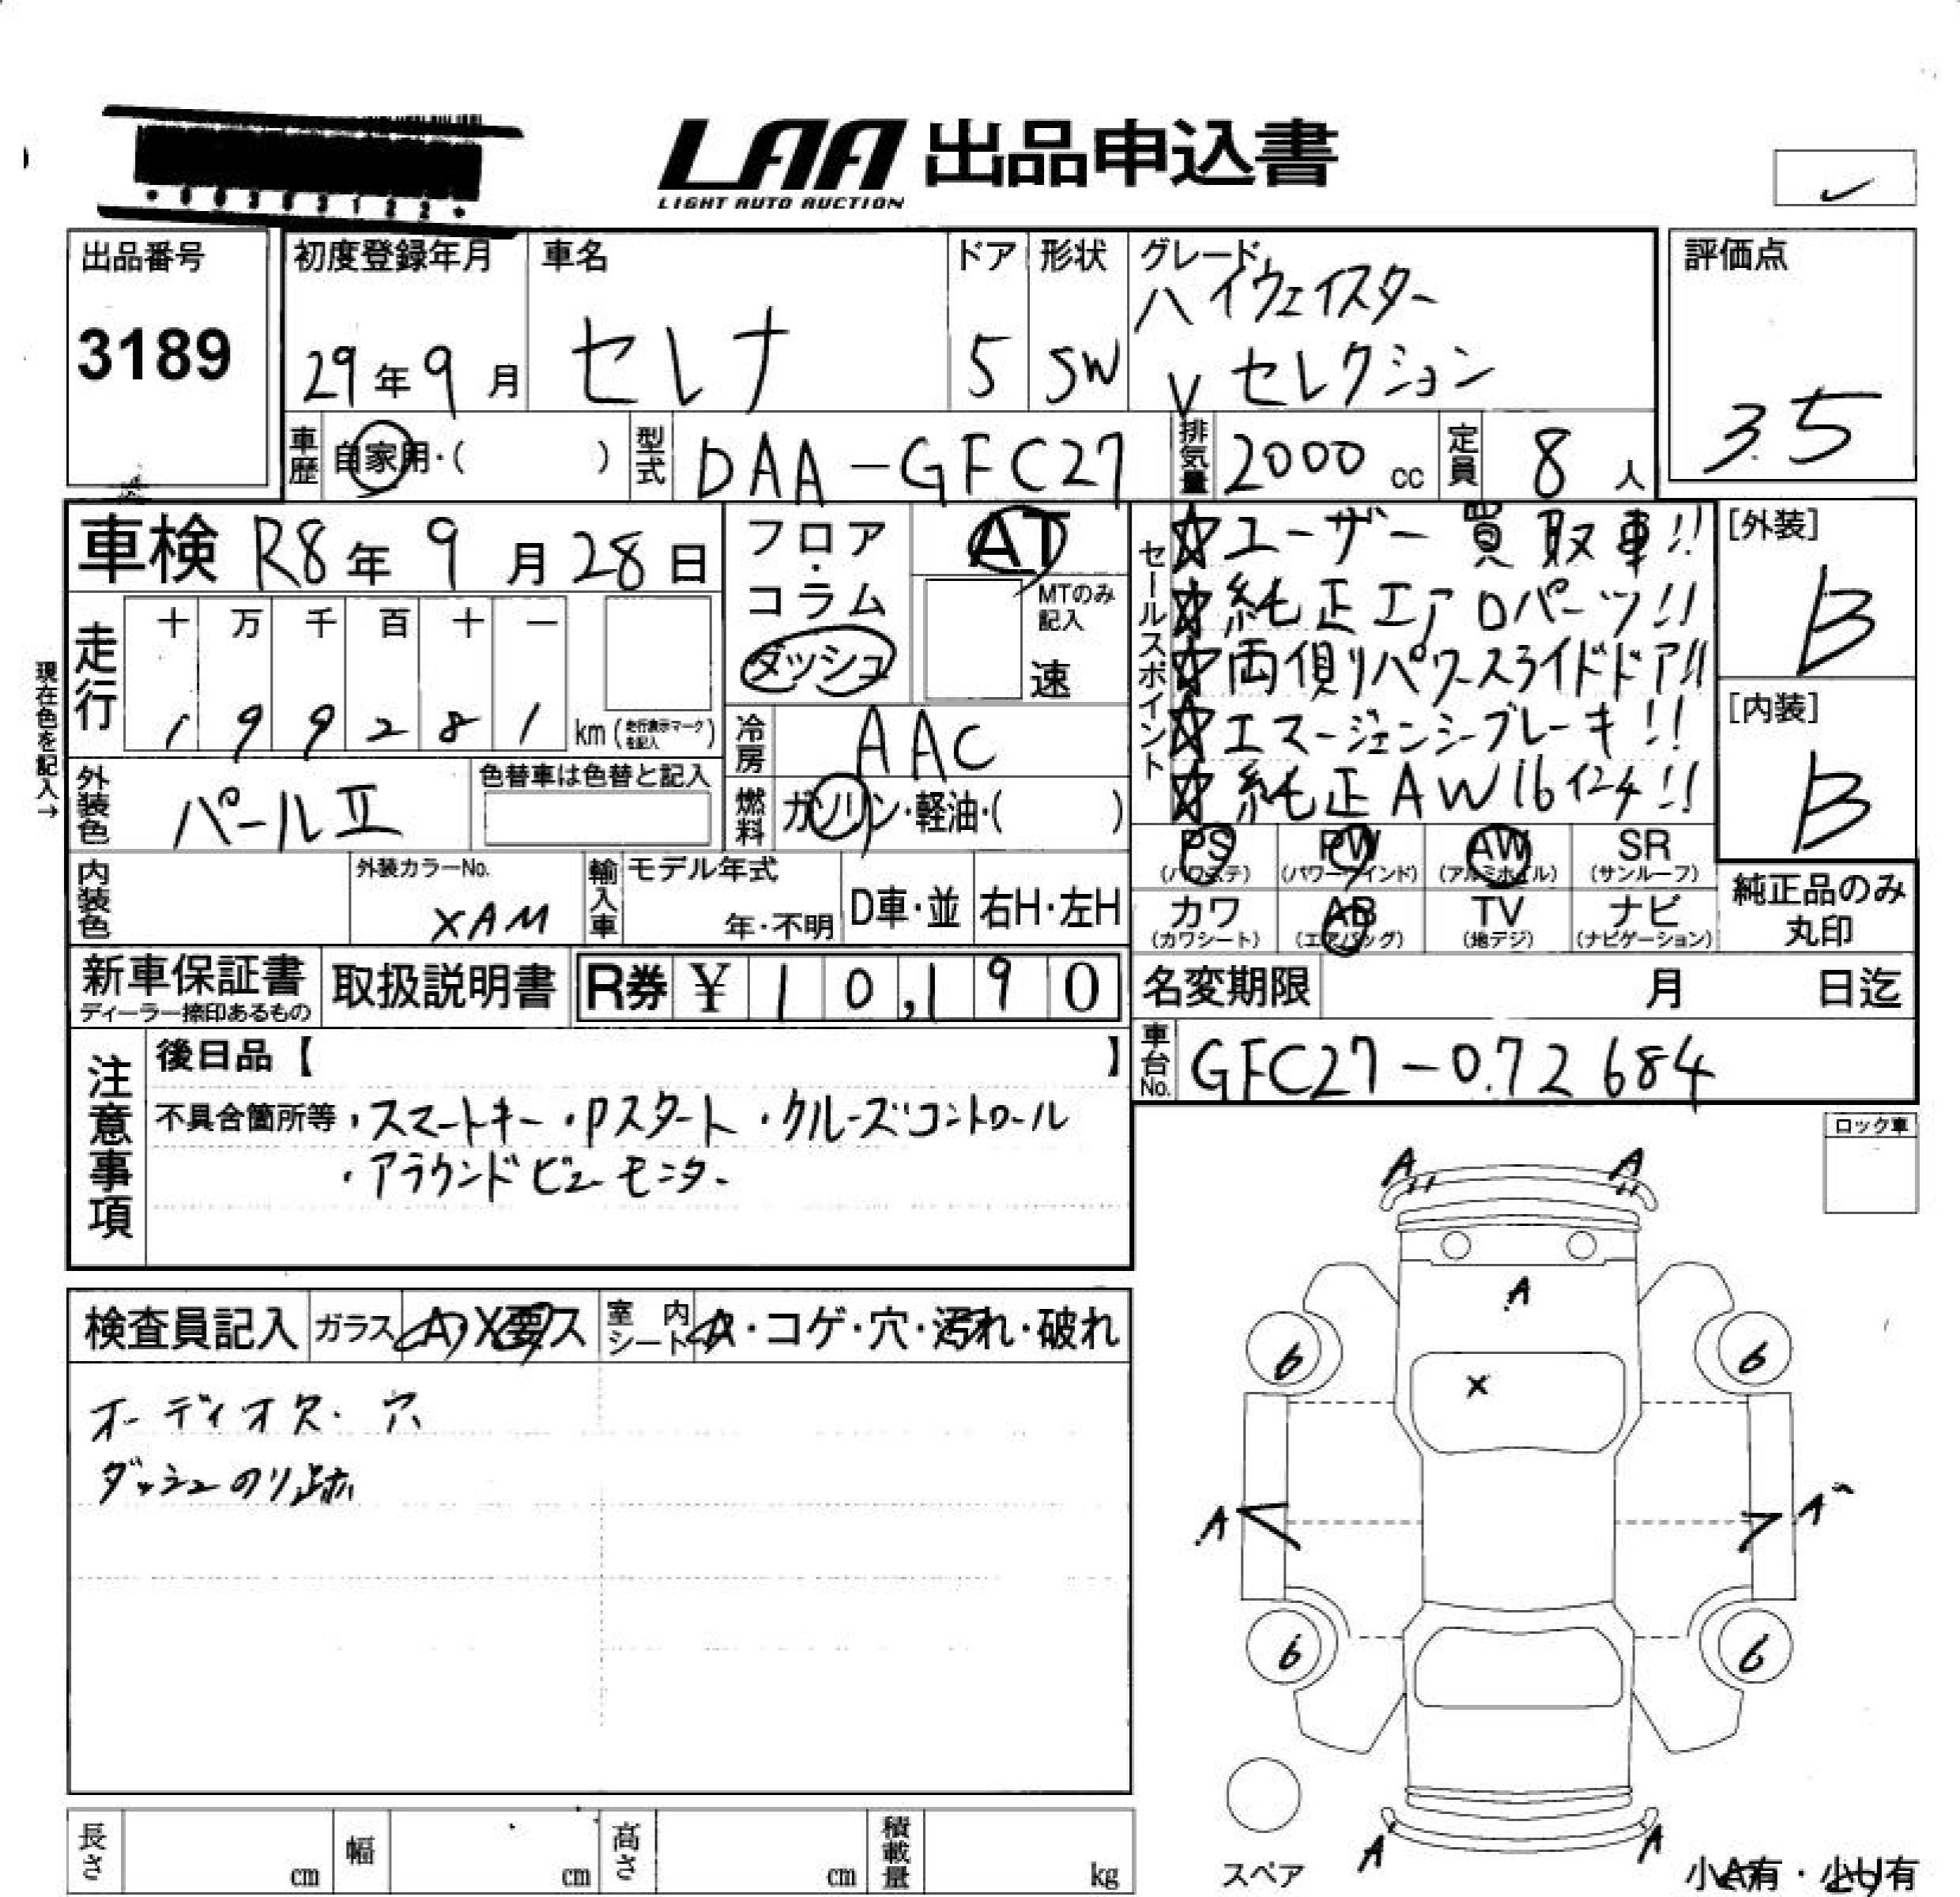 LAA 出品申込書
LIGHT AUTO AUCTION
出品番号
3189
初度登録年月
29年9月
車名
セレナ
ドア
5
形状
SW
グレード
ハイウェイスター
Vセレクション
評価点
3.5
車歴
自家用・( )
型式
DAA-GFC27
排気量
2000 cc
定員
8人
車検 R8年9月28日
走行
十 万 千 百 十 一
1 9 9 2 8 1 km (走行表示マークを記入)
現在色を記入→
外装色
パールⅡ
色替車は色替と記入
内装色
外装カラーNo.
XAM
フロア・コラム
ダッシュ
AT
MTのみ記入
速
冷房
AAC
燃料
ガソリン・軽油・( )
輸入車
モデル年式
年・不明
D車・並
右H・左H
セールスポイント
☆ユーザー買取車!!
☆純正エアロパーツ!!
☆両側リパワースライドドア!!
☆エマージェンシーブレーキ!!
☆純正AW16インチ!!
[外装]
B
[内装]
B
PS (パワステ)
PW (パワーウインド)
AW (アルミホイル)
SR (サンルーフ)
カワ (カワシート)
AB (エアバッグ)
TV (地デジ)
ナビ (ナビゲーション)
純正品のみ
丸印
新車保証書
ディーラー捺印あるもの
取扱説明書
R券 ¥ 10,190
名変期限 月 日迄
車台No.
GFC27-072684
注意事項
後日品【 】
不具合箇所等
・スマートキー・Pスタート・クルーズコントロール
・アラウンドビューモニター
ロック車
検査員記入
ガラス A・X要ス
室内シート A・コゲ・穴・汚れ・破れ
オーディオ欠・穴
ダッシュのり跡
A A
A
6 6
X
A A
6 6
A A
スペア
小A有・小U有
長さ cm
幅 cm
高さ cm
積載量 kg